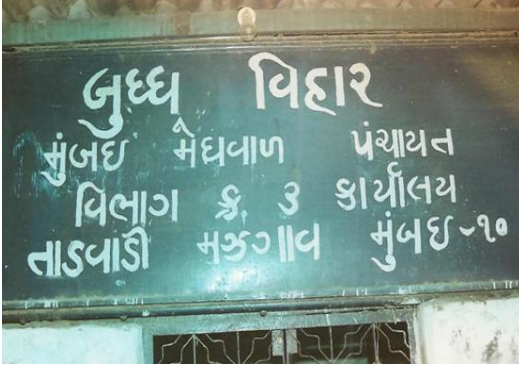 બુધ્ધ વિહાર
મુંબઇ મેઘવાળ પંચાયત
વિભાગ ક્ર. ૩ કાર્યાલય
તાડવાડી મઝગાવ મુંબઇ-૧૦